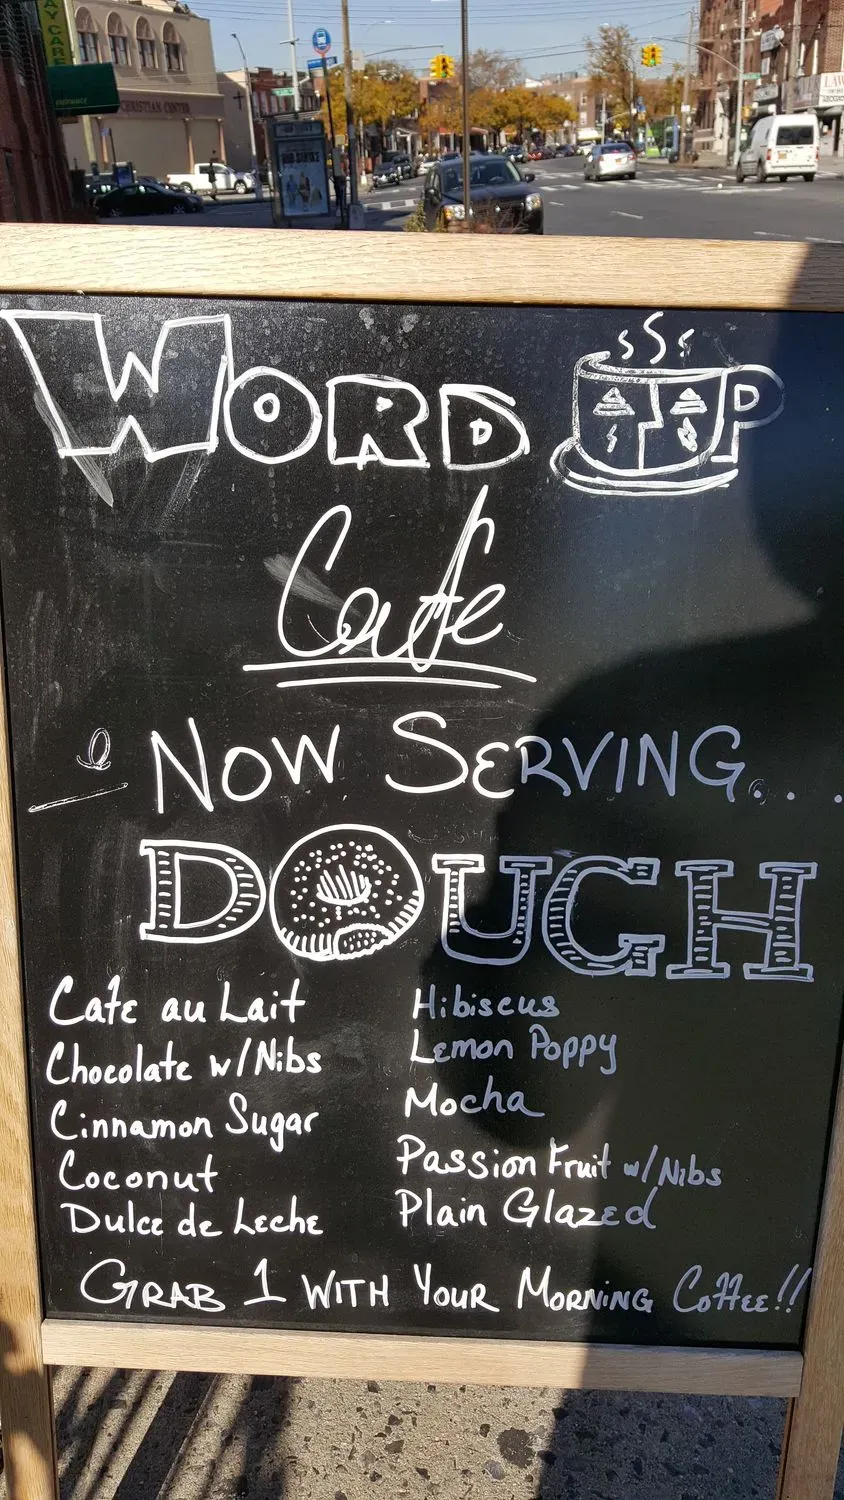 AY CARE
entrance
CHRISTIAN CENTER
LAW
WORD UP
Cafe
NOW SERVING...
DOUGH
Cafe au Lait
Chocolate w/Nibs
Cinnamon Sugar
Coconut
Dulce de Leche
Hibiscus
Lemon Poppy
Mocha
Passion Fruit w/Nibs
Plain Glazed
GRAB 1 WITH YOUR MORNING COFFEE!!